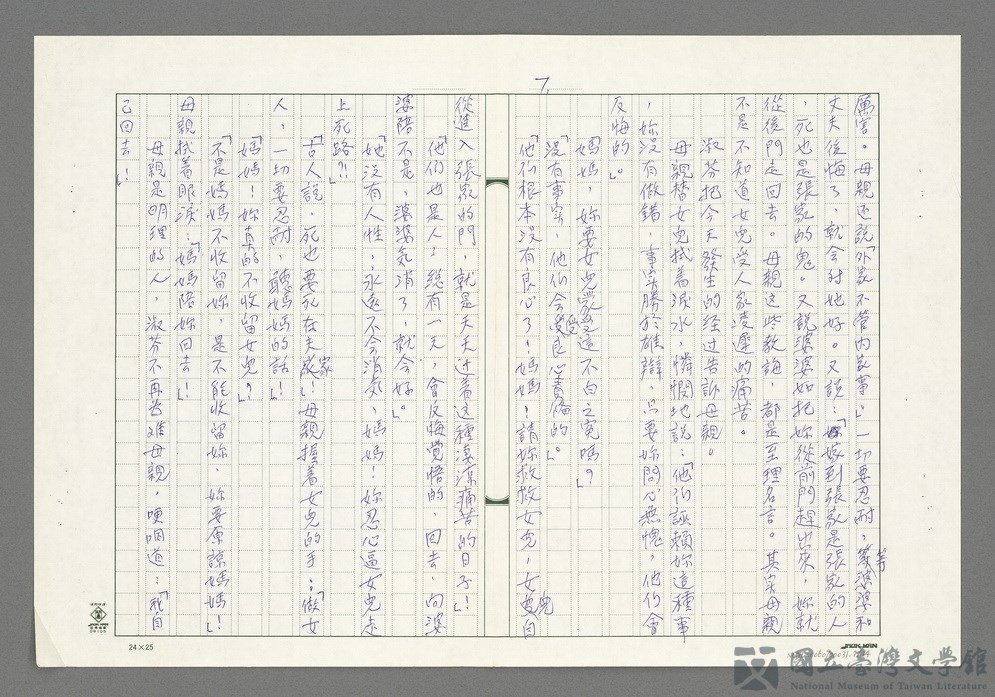 7
厲害。母親还說「外家不管內家事」。一切要忍耐，等婆婆和
丈夫後悔了，就会对她好。又說：「嫁到張家是張家的人
，死也是張家的鬼。又説婆婆如把妳從前門趕出來，妳就
從後門走回去。母親这些教誨，都是至理名言。其实母親
不是不知道女兒受人家凌遲的痛苦。
淑芬把今天發生的经过告訴母親。
母親楷女兒拭着淚水，憐憫地説：「他们誣賴妳這種事
，妳沒有做錯，事实勝於雄辯，只要妳問心無愧，他们會
反悔的」。
媽媽，妳要女兒蒙受這不白之冤嗎？」
「沒有事实，他们会受良心責備的」。
「他们根本沒有良心了！媽媽！請妳救救女兒，女兒自
從進入張家的門，就是天天过着这種淒涼痛苦的日子」！
「他们也是人，總有一天，會反悔覚悟的，回去，向婆
婆陪不是，婆婆気消了，就会好」。
「她沒有人性，永遠不会消気，媽媽！妳忍心逼女兒走
上死路？！」
「古人說，死也要死在夫家！」母親握着女兒的手：「做女
人，一切要忍耐，聽媽媽的話」！
「媽媽！妳真的不收留女兒？」
「不是媽媽不收留妳，是不能收留妳，妳要原諒媽媽」！
母親拭着眼淚：「媽媽陪妳回去」！
母親是明理的人，淑芬不再為难母親，哽咽道：「我自
己回去」！
24×25
國立臺灣文學館
National Museum of Taiwan Literature